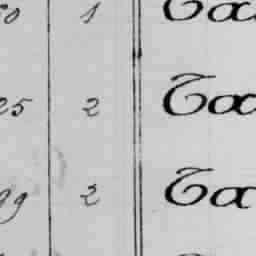 50 1 Ta
25 2 Ta
99 2 Ta